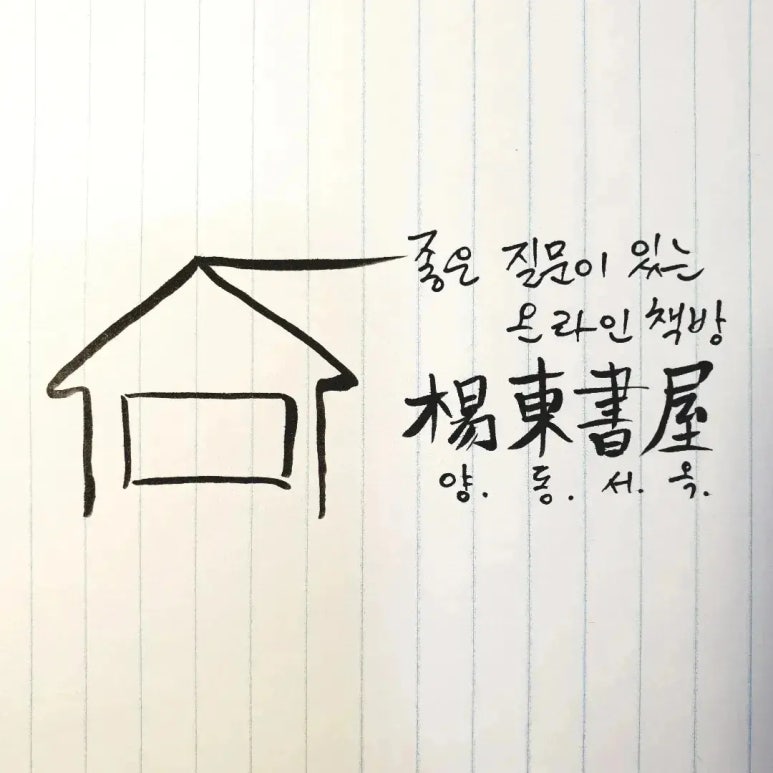 좋은 질문이 있는
온라인 책방
楊東書屋
양. 동. 서. 옥.